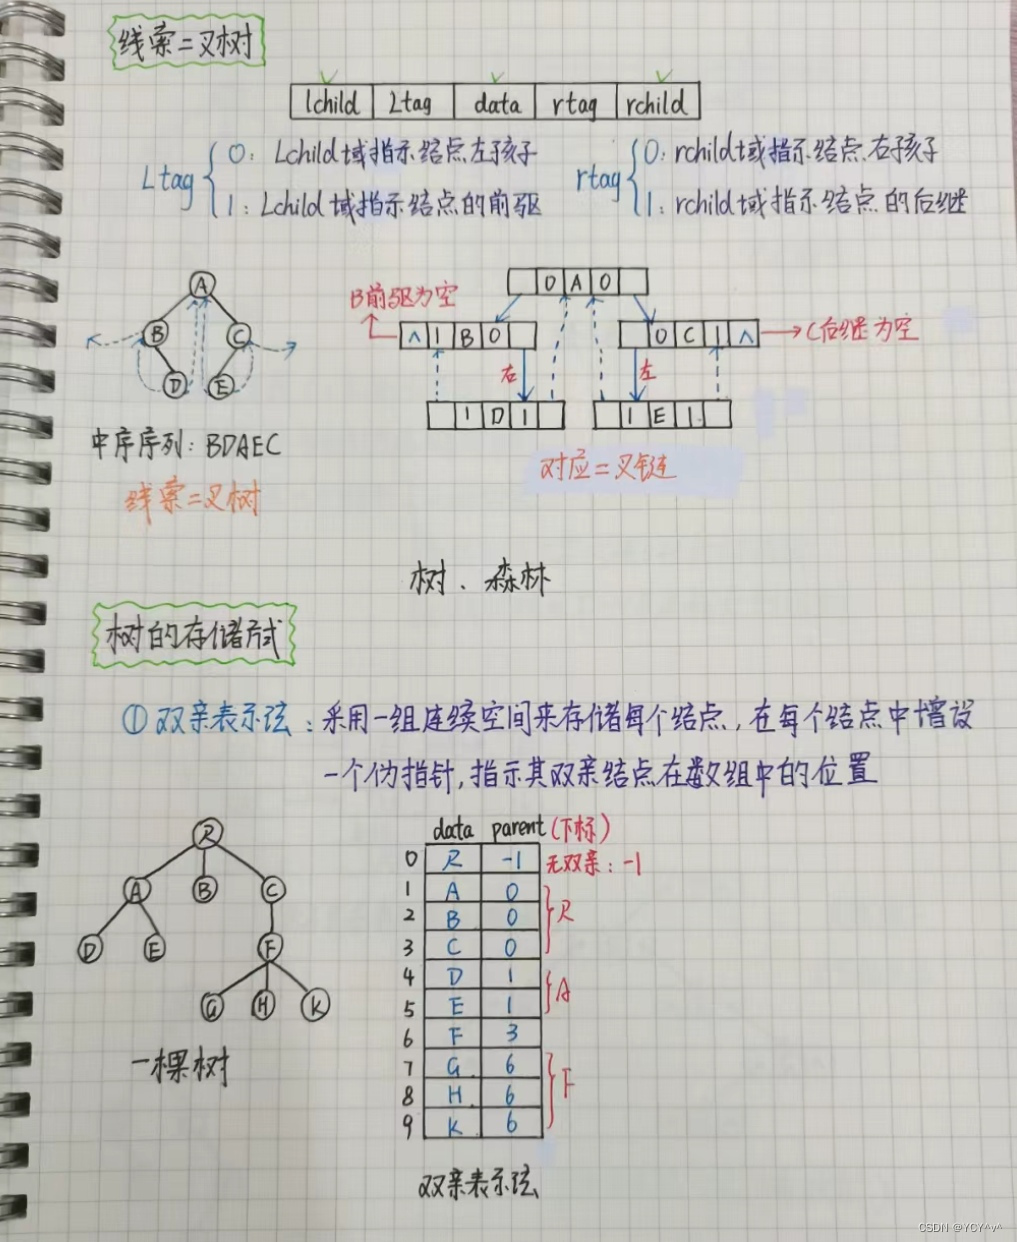 线索二叉树
lchild Ltag data rtag rchild
Ltag 0: Lchild域指示结点左孩子
1: Lchild域指示结点的前驱
rtag 0: rchild域指示结点右孩子
1: rchild域指示结点的后继
A
B C
D E
中序序列: BDAEC
线索二叉树
0 A 0
B前驱为空
∧ 1 B 0
0 C 1 ∧
C后继为空
右 左
1 D 1
1 E 1
对应二叉链
树、森林
树的存储方式
① 双亲表示法: 采用一组连续空间来存储每个结点, 在每个结点中增设
一个伪指针, 指示其双亲结点在数组中的位置
R
A B C
D E F
G H K
一棵树
data parent (下标)
0 R -1 无双亲: -1
1 A 0
2 B 0 R
3 C 0
4 D 1 A
5 E 1
6 F 3
7 G 6
8 H 6 F
9 K 6
双亲表示法
CSDN @YCY^v^